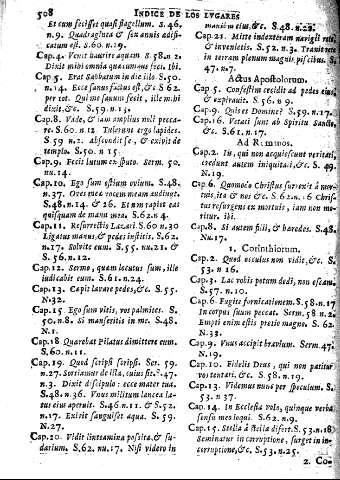 508 INDICE DE LOS LVGARES
Et cum fecisset quasi flagellum. S.46.
n.9. Quadraginta & sex annis ædifi-
catum est. S.60. n.19.
Cap.4. Venit haurire aquam S.58 n.2.
Dixit mihi omnia quæcunque feci. Ibi.
Cap 5. Erat Sabbatum in die illo. S.50.
n.14. Ecce sanus factus est, &c S 62.
per tot. Qui me sanum fecit, ille mihi
dixit. &c. S 59. n 15.
Cap.8. Vade, & iam amplius noli pecca-
re. S.60. n 12 Tulerunt ergo lapides.
S 59 n.2. Abscondit se, & exivit de
templo. S.50. n 15.
Cap.9. Fecit lutum ex sputo. Serm. 50.
nu.14.
Cap.10. Ego sum ostium ovium. S.48.
n.37. Oves meæ vocem meam audiunt.
S.48. n.14. & 26. Et non rapiet eas
quisquam de manu mea. S.62. n.4.
Cap.11. Resurrectis Lazari. S.60 n.30
Ligatus manus, & pedes institis. S.62.
n.17. Solvite eum. S.55. nu.21. &
S.56. n.12.
Cap.12. Sermo, quem locutus sum, ille
iudicabit eum. S.61. n.24.
Cap.13. Capit lavare pedes, &c. S.55.
N.32.
Cap.15 Ego sum vitis, vos palmites. S.
50. n.8. Si manseritis in me. S.48.
N.1.
Cap.18 Quærebat Pilatus dimittere eum.
S.60. n.11.
Cap.19. Quod scripsi scripsi. Ser. 59.
n.27. Sortiamur de illa, cuius sit. S.47.
n.3. Dixit discipulo: ecce mater tua.
S.48. n.36. Vnus militum lancea la-
tus eius aperuit. S.46. n.11. & S.52.
n.17. Exivit sanguis et aqua. S.59.
N.27.
Cap.20. Vidit linteamina posita, & su-
darium. S.62. nu.17. Nisi videro in
manibus eius, &c. S.48. n.22.
Cap.21. Mitte indexteram navigii rete,
& invenietis. S.52. n.3. Traxit rete
in terram plenum magnis piscibus. S.
47. n.7.
Actus Apostolorum.
Cap.5. Confestim cecidit ad pedes eius,
& expiravit. S.56. n 9.
Cap.9. Quis es Domine? S.59. n.17.
Cap.16. Vetati sunt ab Spiritu Sancto,
&c. S.61. n.17.
Ad Romanos.
Cap.2. Iis, qui non acquiescunt veritati,
credunt autem iniquitati, &c. S.49.
N.19.
Cap.6. Quomodo Christus surrexit à mor-
tuis, ita & nos &c. S.62. n.16 Chris
tus resurgens ex mortuis, iam non mo-
ritur. ibi.
Cap.8. Si autem filii, & hæredes. S.48.
Nu.17.
1. Corinthiorum.
Cap.2. Quod oculus non vidit, &c. S.
53. n 16.
Cap.3. Lac vobis potum dedi, non escam.
S.57. n.10.
Cap.6. Fugite fornicationem. S.58. n.17
In corpus suum peccat. Serm.58 n.2.
Empti enim estis pretio magno. S.62.
N.33.
Cap.9. Vnus accipit bravium. Serm.47.
N.19.
Cap.10. Fidelis Deus, qui non patitur
vos tentari, &c. S.58. n.19.
Cap.13. Videmus nunc per speculum. S.
53. n 37.
Cap.14. In Ecclesia volo, quinque verba
sensu meo loqui. S.62. n 9.
Cap.15. Stella à stella differt. S.53. n.18
Seminatur in corruptione, surget in in-
corruptione, &c. S.53. n.25.
2. Co-